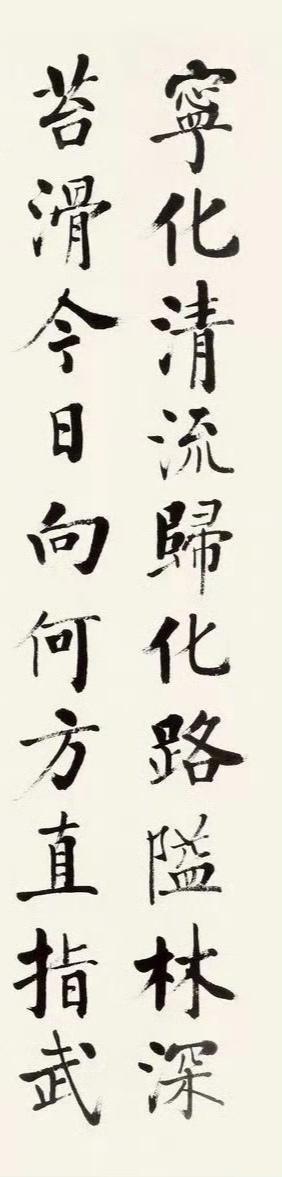 寧化清流歸化路隘林深
苔滑今日向何方直指武